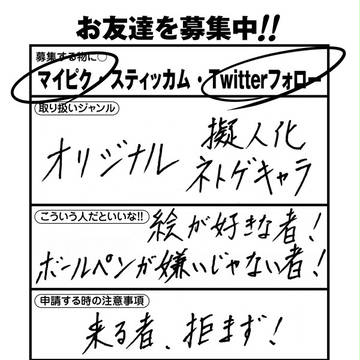 お友達を募集中!!
募集する物に○
マイピク・スティッカム・Twitterフォロー
取り扱いジャンル
オリジナル 擬人化
ネトゲキャラ
こういう人だといいな!!
絵が好きな者!
ボールペンが嫌いじゃない者!
申請する時の注意事項
来る者、拒まず!